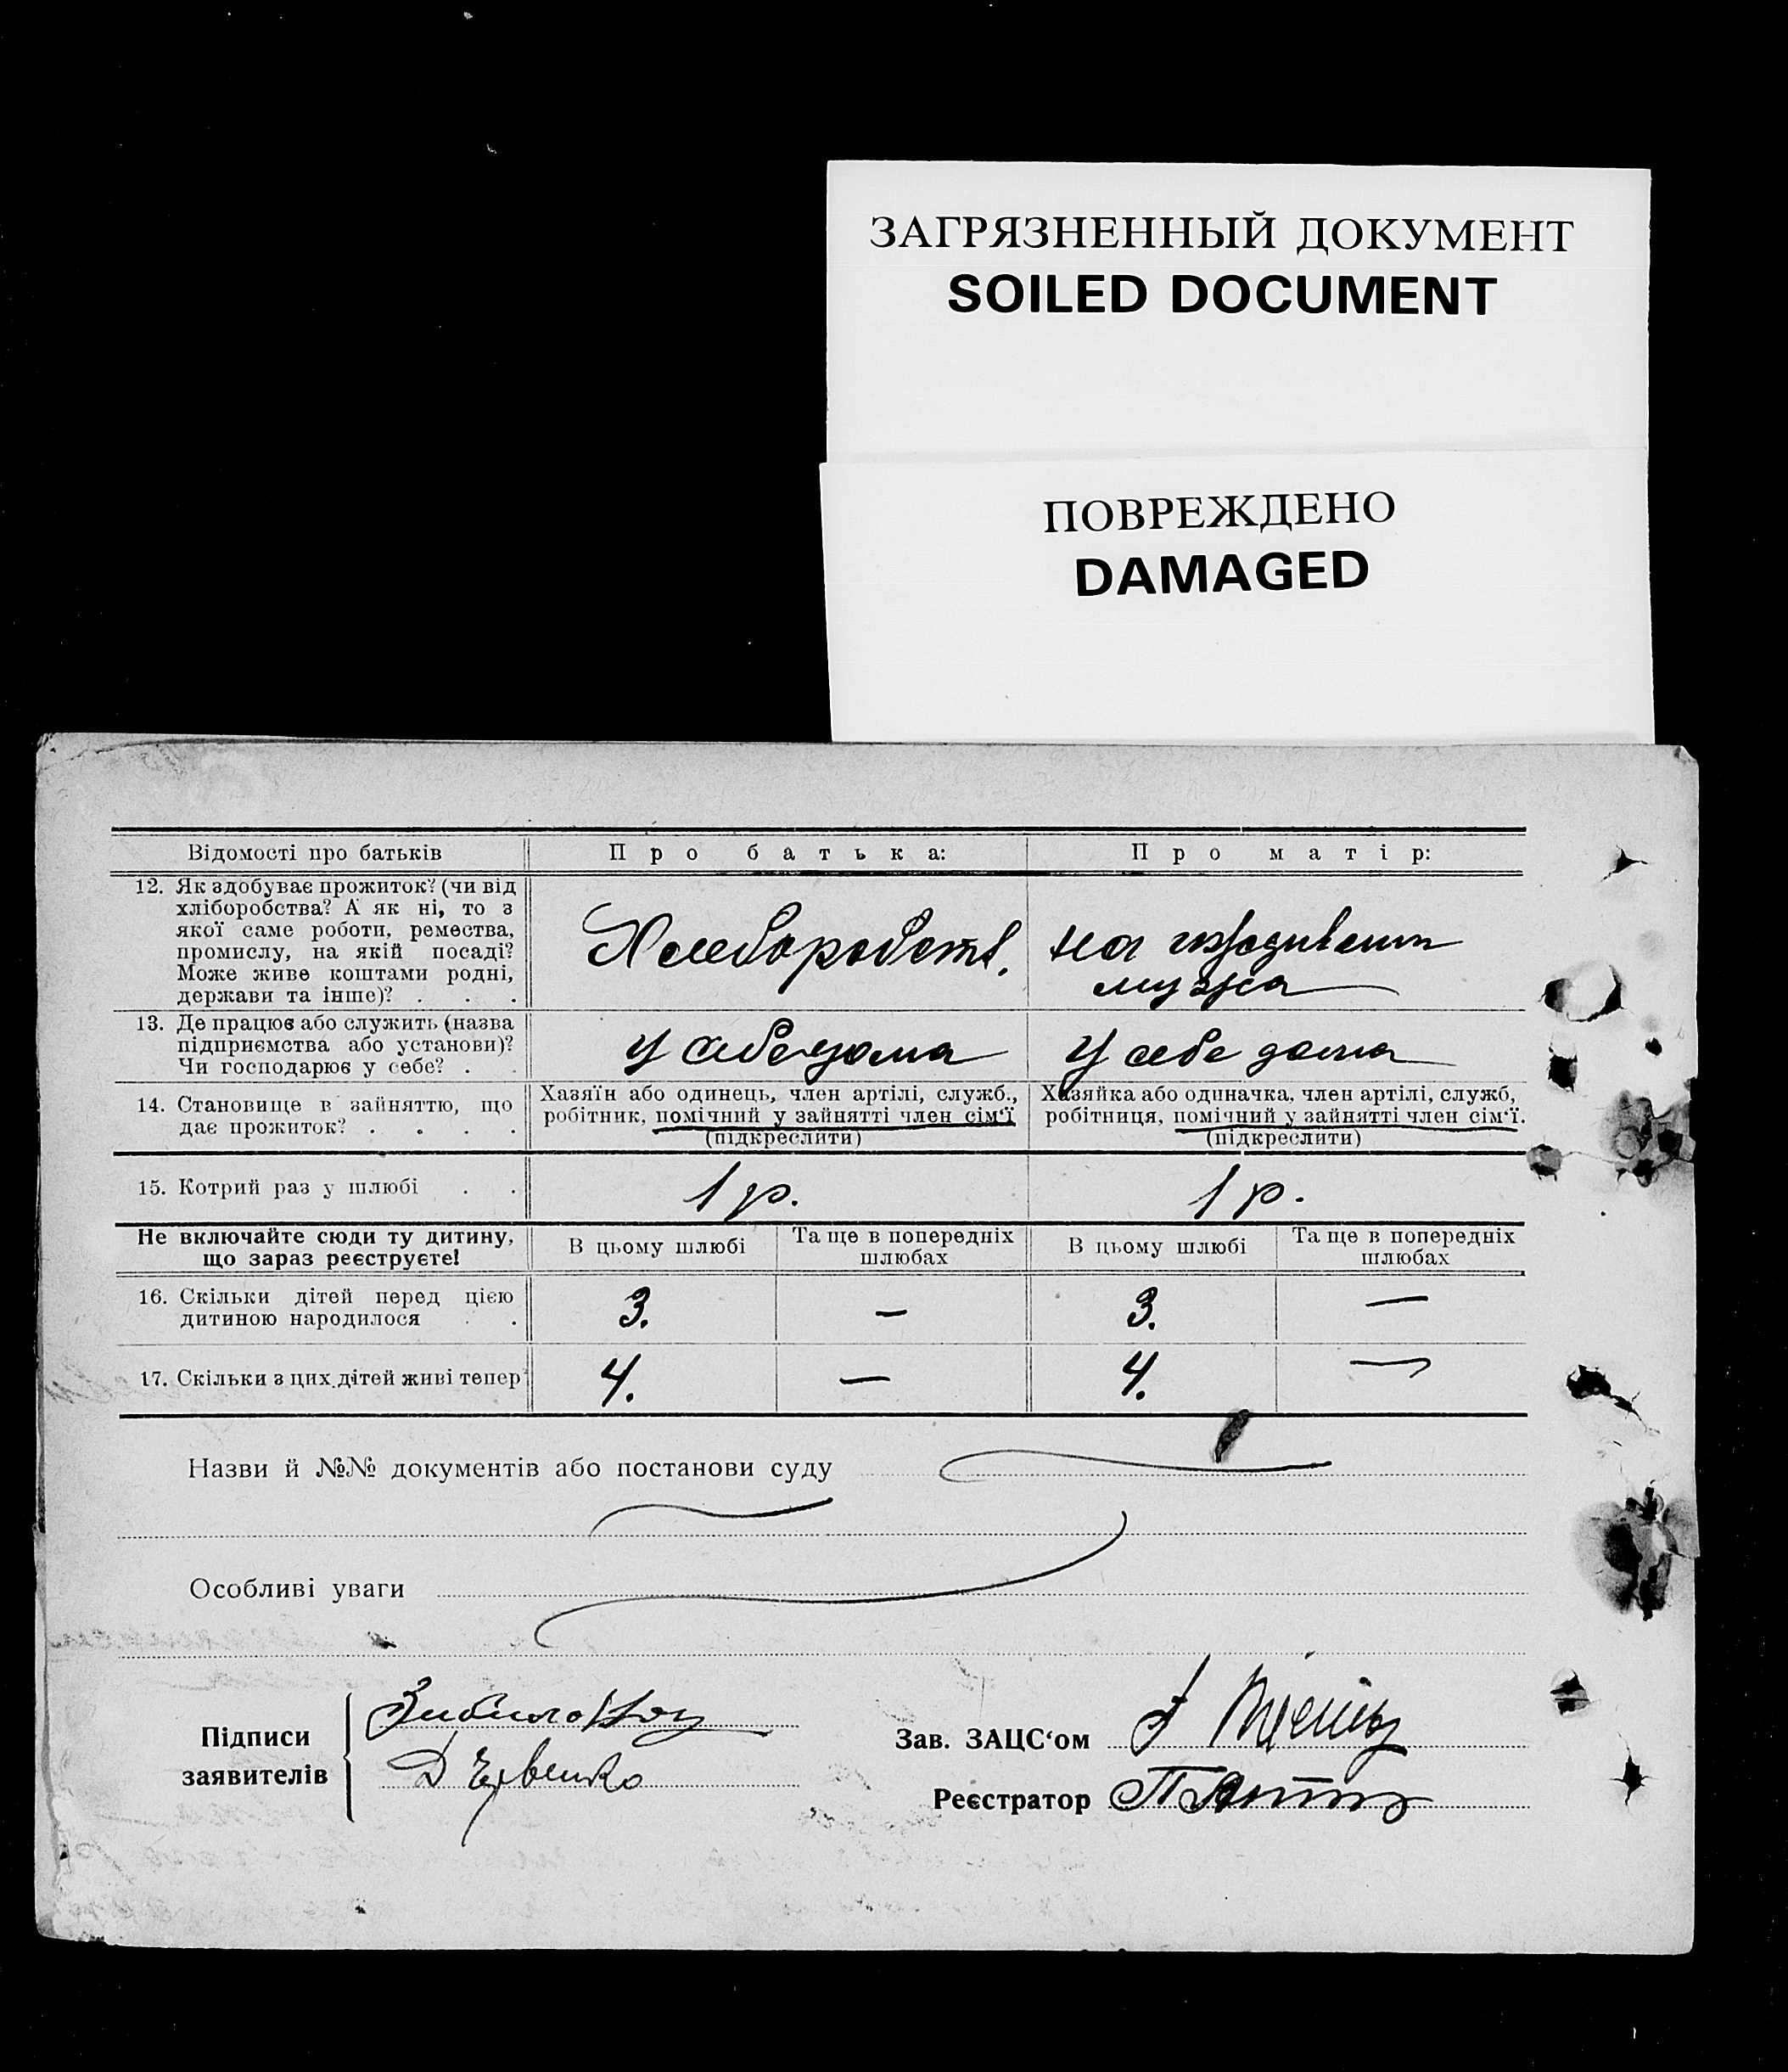 ЗАГРЯЗНЕННЫЙ ДОКУМЕНТ
SOILED DOCUMENT
ПОВРЕЖДЕНО
DAMAGED
Відомості про батьків
Про батька:
Про матір:
12. Як здобуває прожиток? (чи від
хліборобства? А як ні, то з
якої саме роботи, ремества,
промислу, на якій посаді?
Може живе коштами родні,
держави та інше)? . . .
Хлеборобств.
на
мужа
13. Де працює або служить (назва
підприємства або установи)?
Чи господарює у себе? . .
У себе дома
У себе дома
14. Становище в зайняттю, що
дає прожиток? . . . .
Хазяїн або одинець, член артілі, служб.,
робітник, помічний у зайнятті член сім‘ї
(підкреслити)
Хазяйка або одиначка, член артілі, служб,
робітниця, помічний у зайнятті член сім‘ї.
(підкреслити)
15. Котрий раз у шлюбі . .
1 р.
1 р.
Не включайте сюди ту дитину,
що зараз реєструєте!
В цьому шлюбі
Та ще в попередніх
шлюбах
В цьому шлюбі
Та ще в попередніх
шлюбах
16. Скільки дітей перед цією
дитиною народилося . .
3.
—
3.
—
17. Скільки з цих дітей живі тепер
4.
—
4.
—
Назви й №№ документів або постанови суду
Особливі уваги
Підписи
заявителів
Зав. ЗАЦС‘ом
Реєстратор